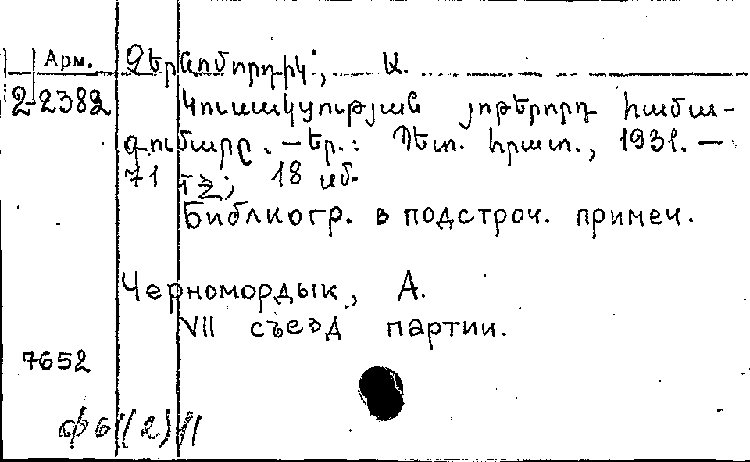 Арм. Չերնոմորդիկ, Ա.
2-2382 Կուսակցության յոթերորդ համա-
գումարը. — Եր.: Պետ. հրատ., 1931. —
71 էջ; 18 սմ.
Библиогр. в подстроч. примеч.
Черномордык, А.
VII съезд партии.
7652